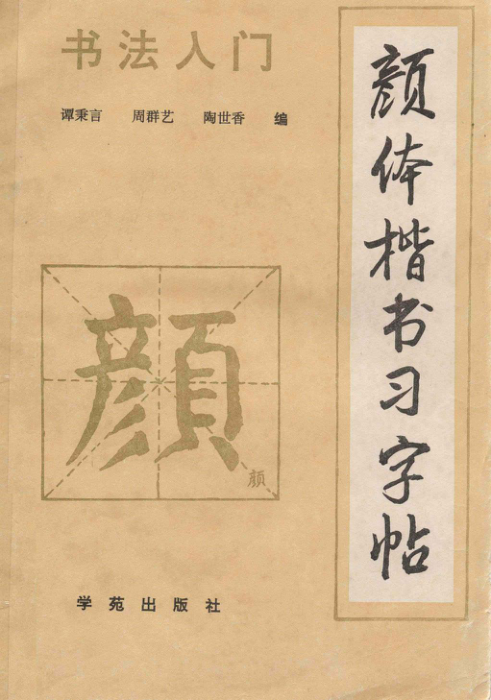 书法入门
谭秉言 周群艺 陶世香 编
颜体楷书习字帖
顔
颜
学苑出版社